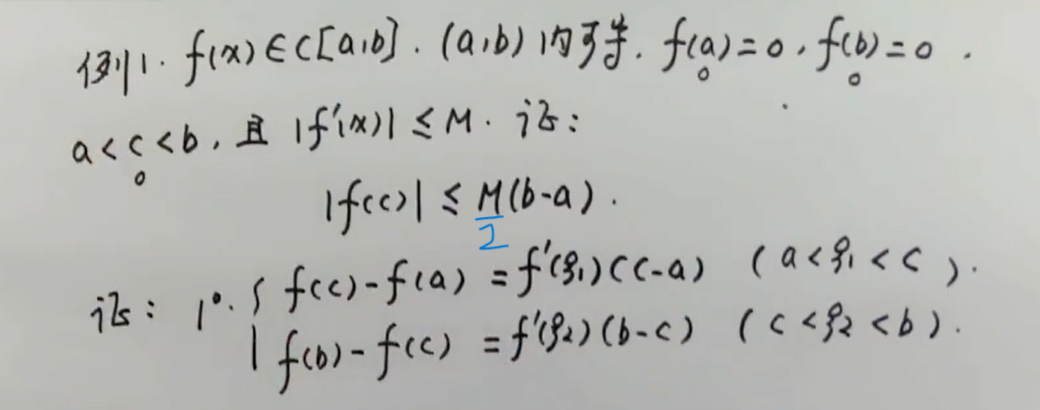 例1. f(x)∈C[a,b]. (a,b)内可导. f(a)=0, f(b)=0.
a<c<b, 且 |f'(x)|≤M. 证:
|f(c)| ≤ M/2 (b-a).
证: 1°. { f(c)-f(a) = f'(ξ₁)(c-a) (a<ξ₁<c).
f(b)-f(c) = f'(ξ₂)(b-c) (c<ξ₂<b).